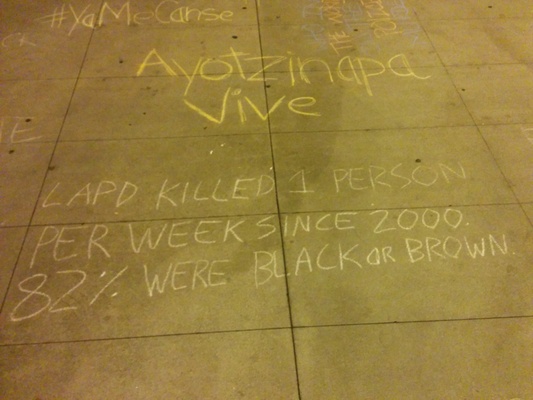 #YaMeCanse
THE
Ayotzinapa
Vive
LAPD KILLED 1 PERSON
PER WEEK SINCE 2000.
82% WERE BLACK OR BROWN.